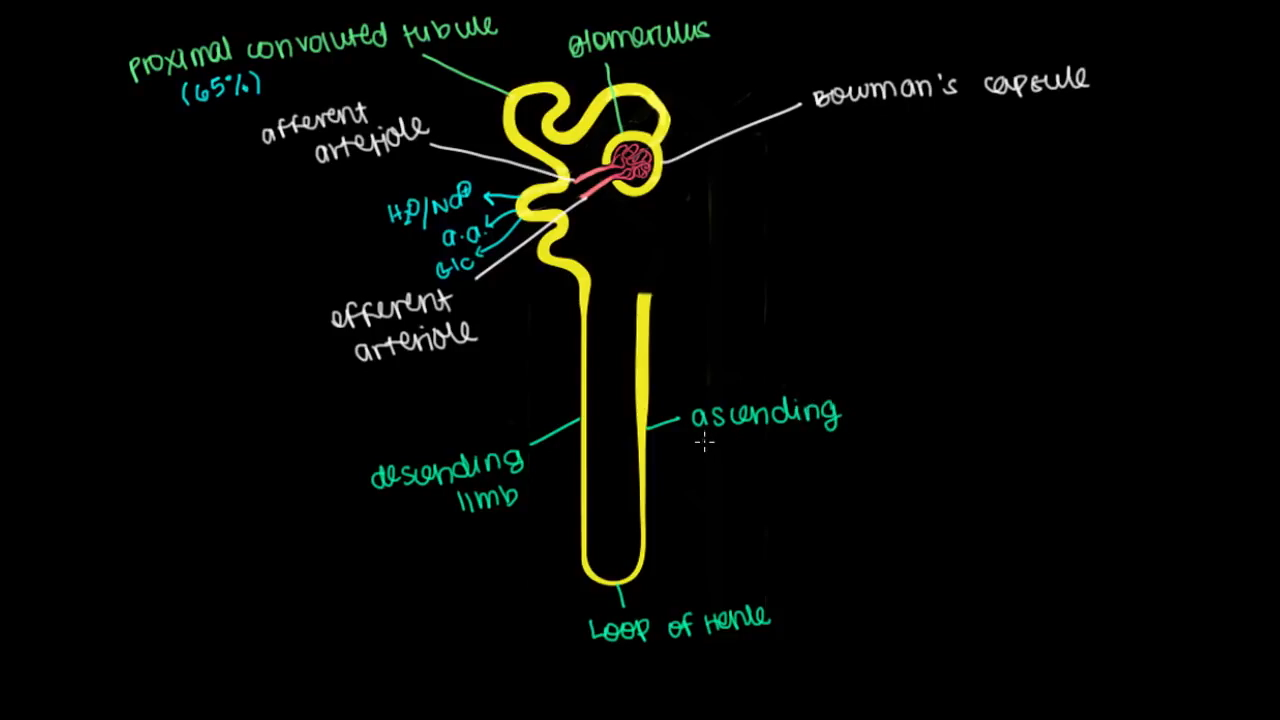 proximal convoluted tubule
(65%)
glomerulus
Bowman's capsule
afferent
arteriole
H2O/Na+
a.a.
Glc
efferent
arteriole
ascending
descending
limb
Loop of Henle